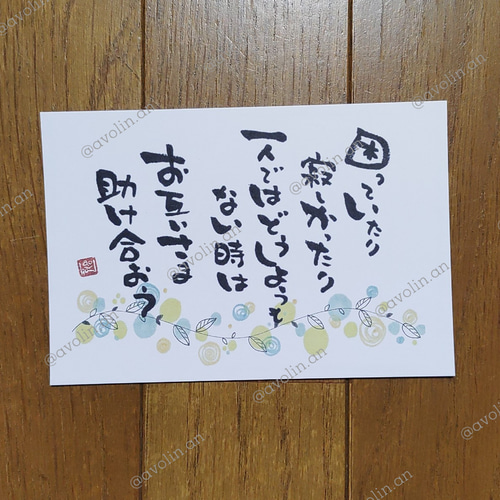 困っていたり
寂しかったり
一人ではどうしようも
ない時は
お互いさま
助け合おう
@avolin.an
@avolin.an
@avolin.an
@avolin.an
@avolin.an
@avolin.an
@avolin.an
@avolin.an
@avolin.an
@avolin.an
@avolin.an
@avolin.an